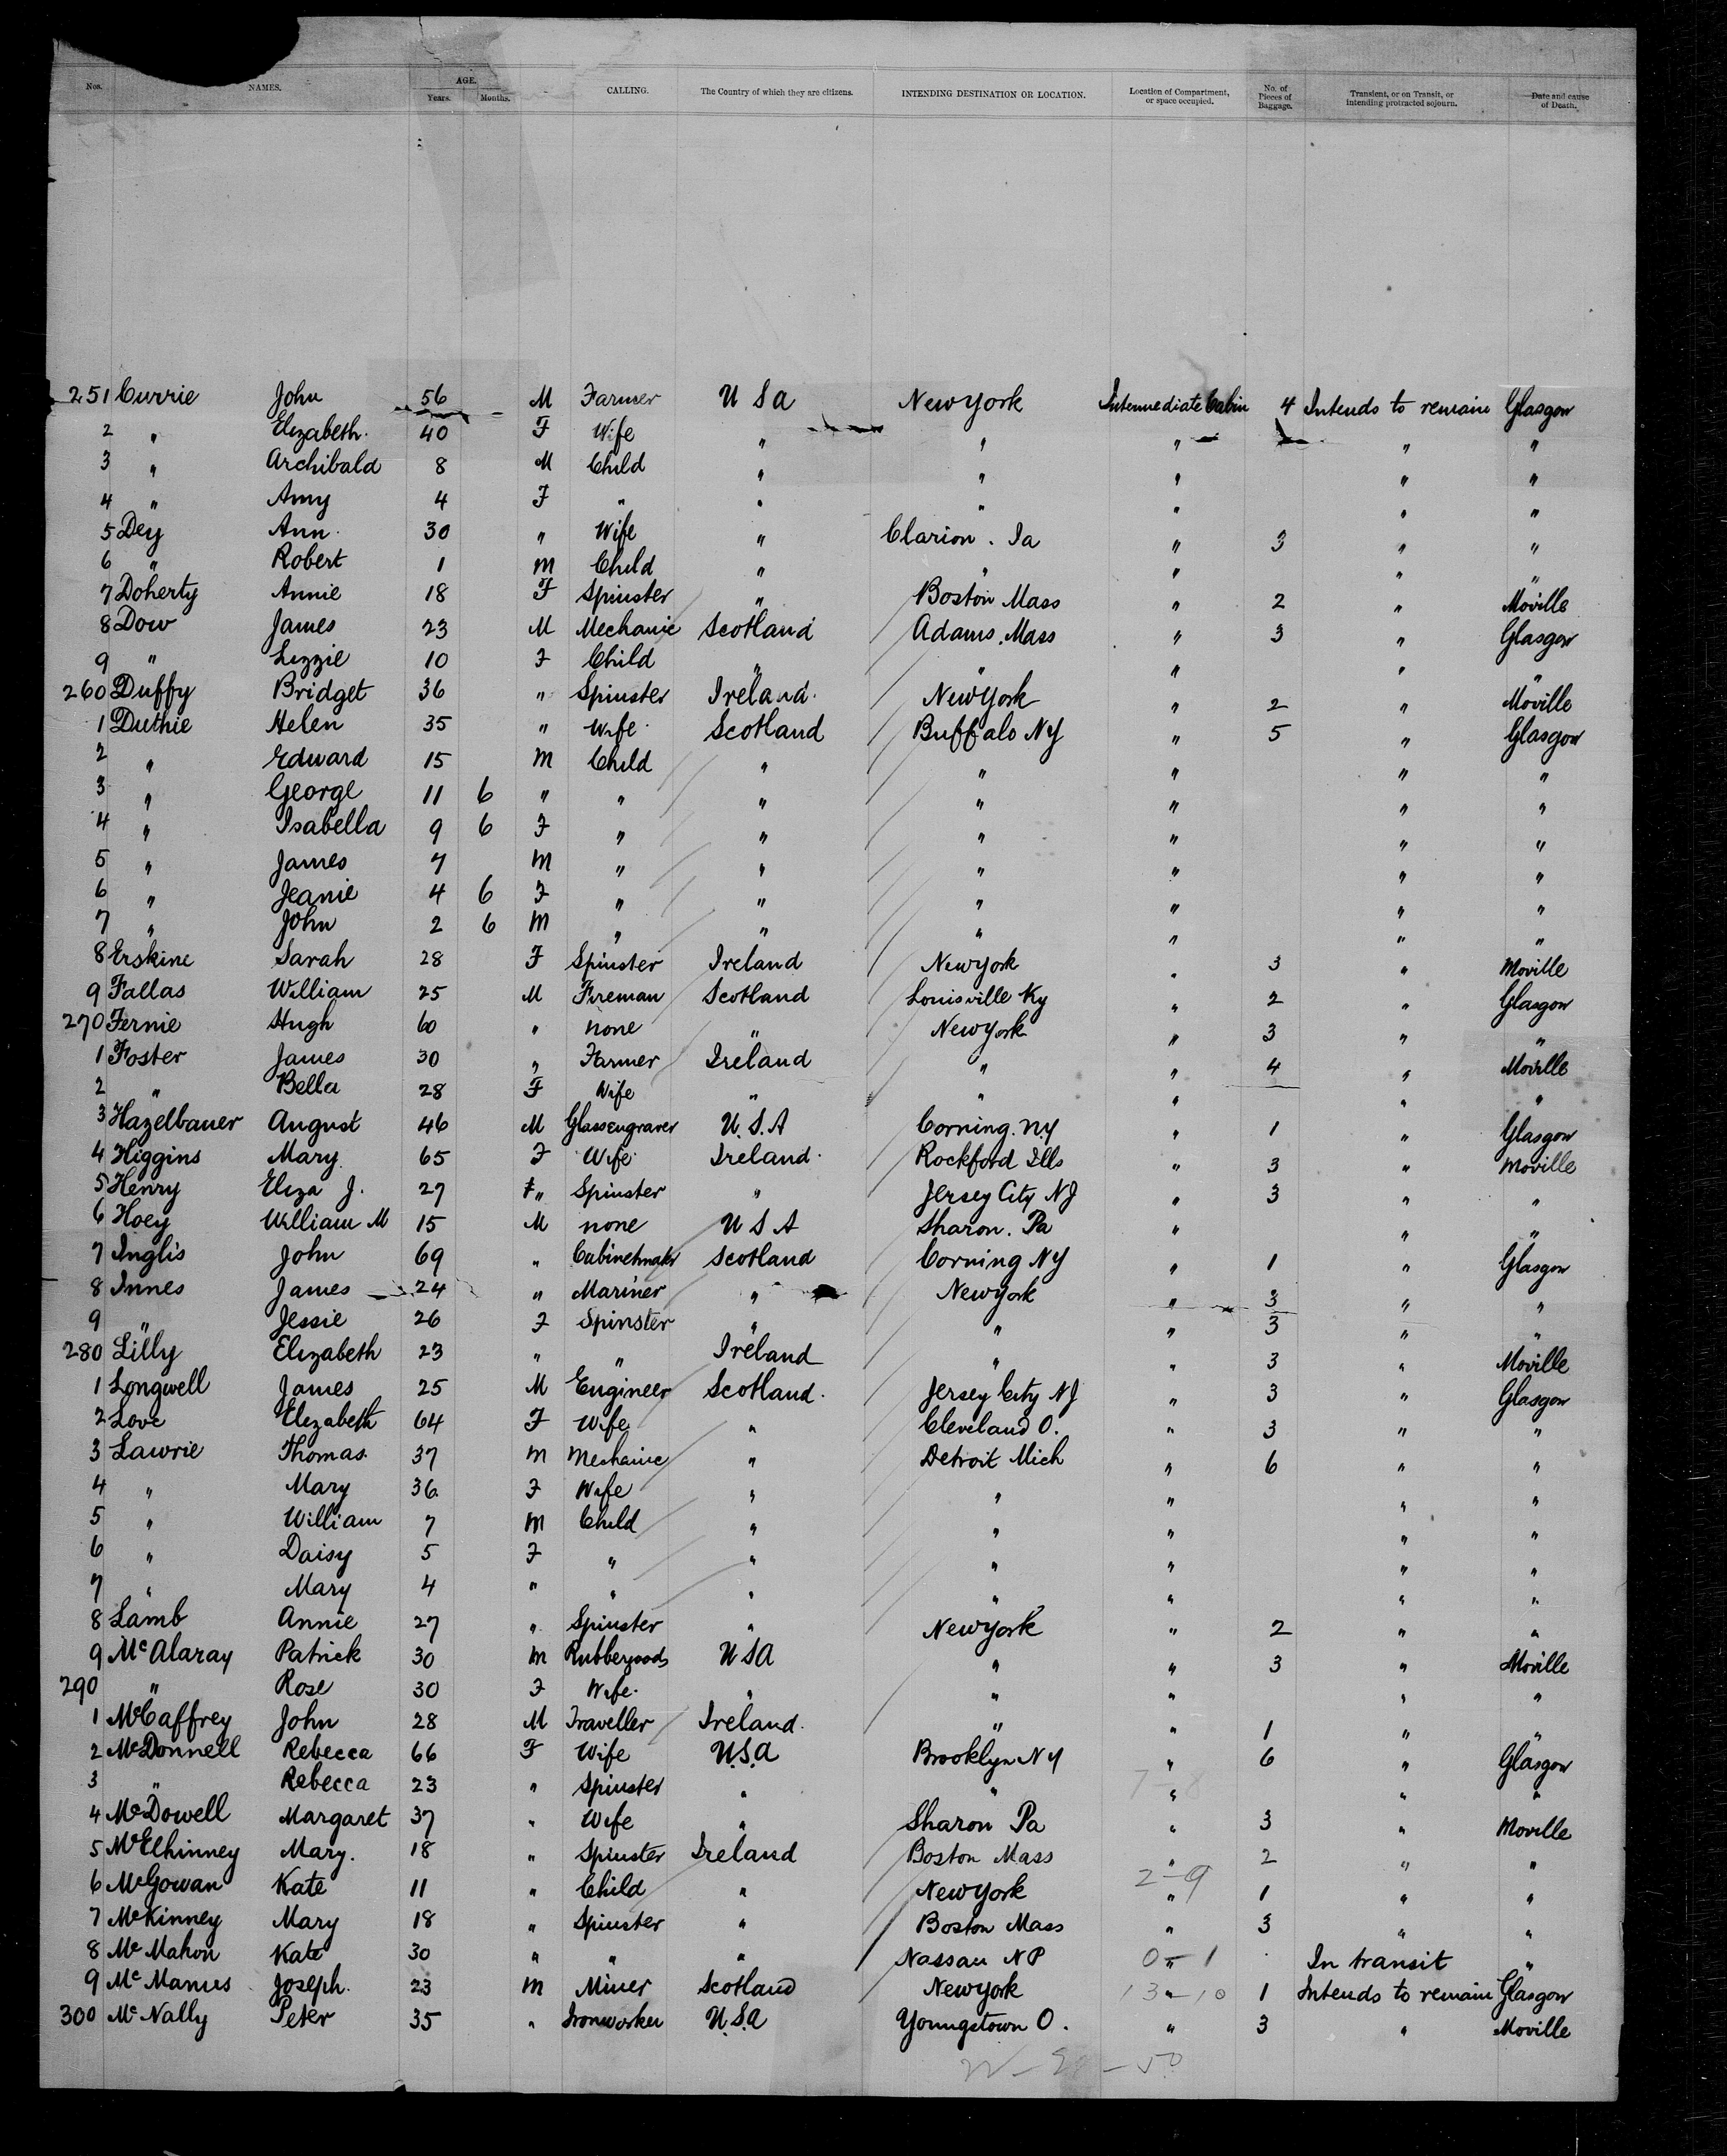 Nos. NAMES. AGE. Years. Months. CALLING. The Country of which they are citizens. INTENDING DESTINATION OR LOCATION. Location of Compartment, or space occupied. No. of Pieces of Baggage. Transient, or on Transit, or intending protracted sojourn. Date and cause of Death.
251 Currie John 56 M Farmer U S A New York Intermediate Cabin 4 Intends to remain Glasgow
2 " Elizabeth. 40 F Wife " " " " "
3 " Archibald 8 M Child " " " " "
4 " Amy 4 F " " " " " "
5 Dey Ann. 30 " Wife " Clarion. Ia " 3 " "
6 " Robert 1 M Child " " " " "
7 Doherty Annie 18 F Spinster " Boston Mass " 2 " Moville
8 Dow James 23 M Mechanic Scotland Adams. Mass " 3 " Glasgow
9 " Lizzie 10 F Child " " " " "
260 Duffy Bridget 36 " Spinster Ireland. New York " 2 " Moville
1 Duthie Helen 35 " Wife Scotland Buffalo NY " 5 " Glasgow
2 " Edward 15 M Child " " " " "
3 " George 11 6 " " " " " " "
4 " Isabella 9 6 F " " " " " "
5 " James 7 M " " " " " "
6 " Jeanie 4 6 F " " " " " "
7 " John 2 6 M " " " " " "
8 Erskine Sarah 28 F Spinster Ireland New York " 3 " Moville
9 Fallas William 25 M Fireman Scotland Louisville Ky " 2 " Glasgow
270 Fernie Hugh 60 " none " New York " 3 " "
1 Foster James 30 " Farmer Ireland " " 4 " Moville
2 " Bella 28 F Wife " " " " "
3 Hazelbauer August 46 M Glassengraver U.S.A Corning. NY " 1 " Glasgow
4 Higgins Mary 65 F Wife Ireland. Rockford Ills " 3 " Moville
5 Henry Eliza J. 27 F" Spinster " Jersey City NJ " 3 " "
6 Hoey William M 15 M none U S A Sharon. Pa " " "
7 Inglis John 69 " Cabinetmaker Scotland Corning NY " 1 " Glasgow
8 Innes James 24 " Mariner " New York " 3 " "
9 " Jessie 26 F Spinster " " " 3 " "
280 Lilly Elizabeth 23 " " Ireland " " 3 " Moville
1 Longwell James 25 M Engineer Scotland. Jersey City NJ " 3 " Glasgow
2 Love Elizabeth 64 F Wife " Cleveland O. " 3 " "
3 Lawrie Thomas. 37 M Mechanic " Detroit Mich " 6 " "
4 " Mary 36. F Wife " " " " "
5 " William 7 M Child " " " " "
6 " Daisy 5 F " " " " " "
7 " Mary 4 " " " " " " "
8 Lamb Annie 27 " Spinster " New York " 2 " "
9 McAlaray Patrick 30 M Rubbergoods U S A " " 3 " Moville
290 " Rose 30 F Wife. " " " " "
1 McCaffrey John 28 M Traveller Ireland. " " 1 " "
2 McDonnell Rebecca 66 F Wife U.S.A Brooklyn NY " 6 " Glasgow
3 " Rebecca 23 " Spinster " " " " "
4 McDowell Margaret 37 " Wife " Sharon Pa " 3 " Moville
5 McElhinney Mary. 18 " Spinster Ireland Boston Mass " 2 " "
6 McGowan Kate 11 " Child " New York 2-9 " 1 " "
7 McKinney Mary 18 " Spinster " Boston Mass " 3 " "
8 McMahon Kate 30 " " " Nassau N P 0-1 " In transit "
9 McManus Joseph. 23 M Miner Scotland New York 13-10 " 1 Intends to remain Glasgow
300 McNally Peter 35 " Ironworker U.S.A Youngstown O. " 3 " Moville